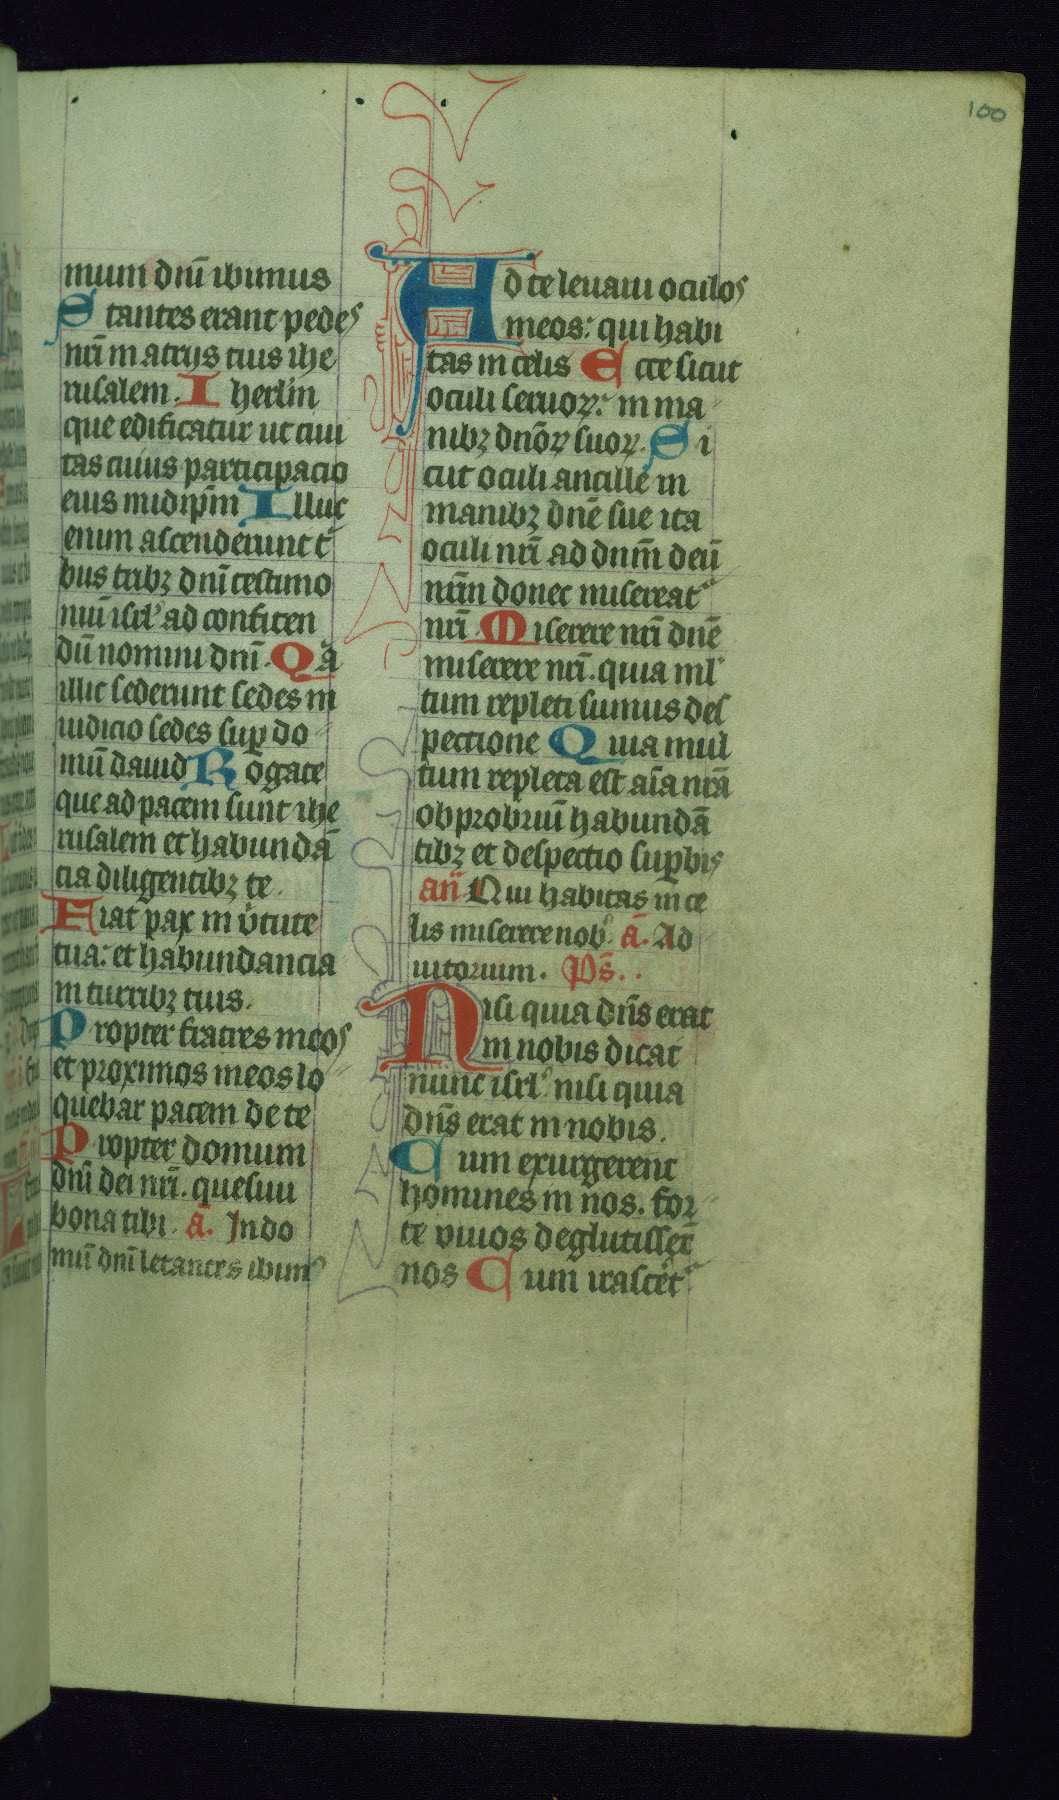 100
mum dnī ibimus
Stantes erant pedes
nr̄i in atrijs tuis ihe
rusalem. Iherl̄m
que edificatur ut ciui
tas cuius participacio
eius in idip̄m Illuc
enim ascenderunt t
bus tribꝫ dnī testimo
niū isrl̓ ad confiten
dū nomini dnī. Qᷓa
illic sederunt sedes in
iudicio sedes suꝑ do
mū dauid Rogate
que ad pacem sunt ihe
rusalem et habundā
cia diligentibꝫ te.
Fiat pax in v̓tute
tua: et habundancia
in turribꝫ tuis.
Propter fratres meos
et proximos meos lo
quebar pacem de te
Propter domum
dnī dei nr̄i. quesiui
bona tibi. ā. In do
mū dnī letantes ibimꝰ
Ad te leuaui oculos
meos: qui habi
tas in celis Ecce sicut
oculi seruoꝝ: in ma
nibꝫ dn̄oꝝ suoꝝ. Si
cut oculi ancille in
manibꝫ dn̄e sue ita
oculi nr̄i ad dnm̄ deū
nr̄m donec misereat᷑
nr̄i. Miserere nr̄i dn̄e
miserere nr̄i. quia ml̓
tum repleti sumus des
pectione Quia mul
tum repleta est aīa nr̄a
obprobriū habundā
tibꝫ et despectio suꝑbis
an̄. Qui habitas in ce
lis miserere nob̓. ā. Ad
iutorium. Ps̄.
Nisi quia dn̄s erat
in nobis dicat
nunc isrl̓ nisi quia
dn̄s erat in nobis.
Cum exurgerent
homines in nos. for
te viuos deglutissēt
nos Cum irascēt᷑